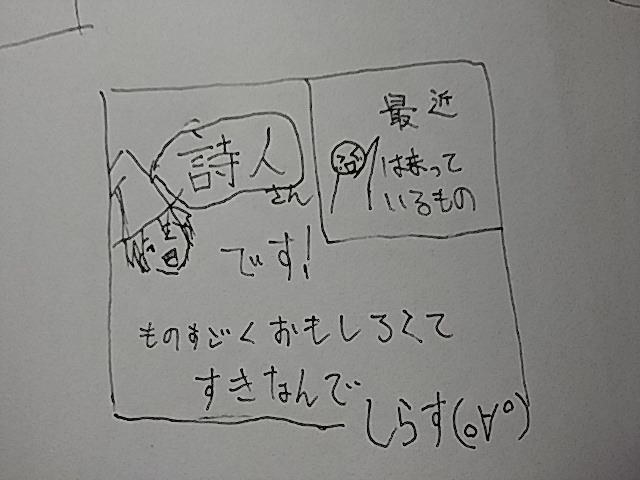 最近
はまって
いるもの
詩人
さん
です!
ものすごくおもしろくて
すきなんで
しらす(o∀°)